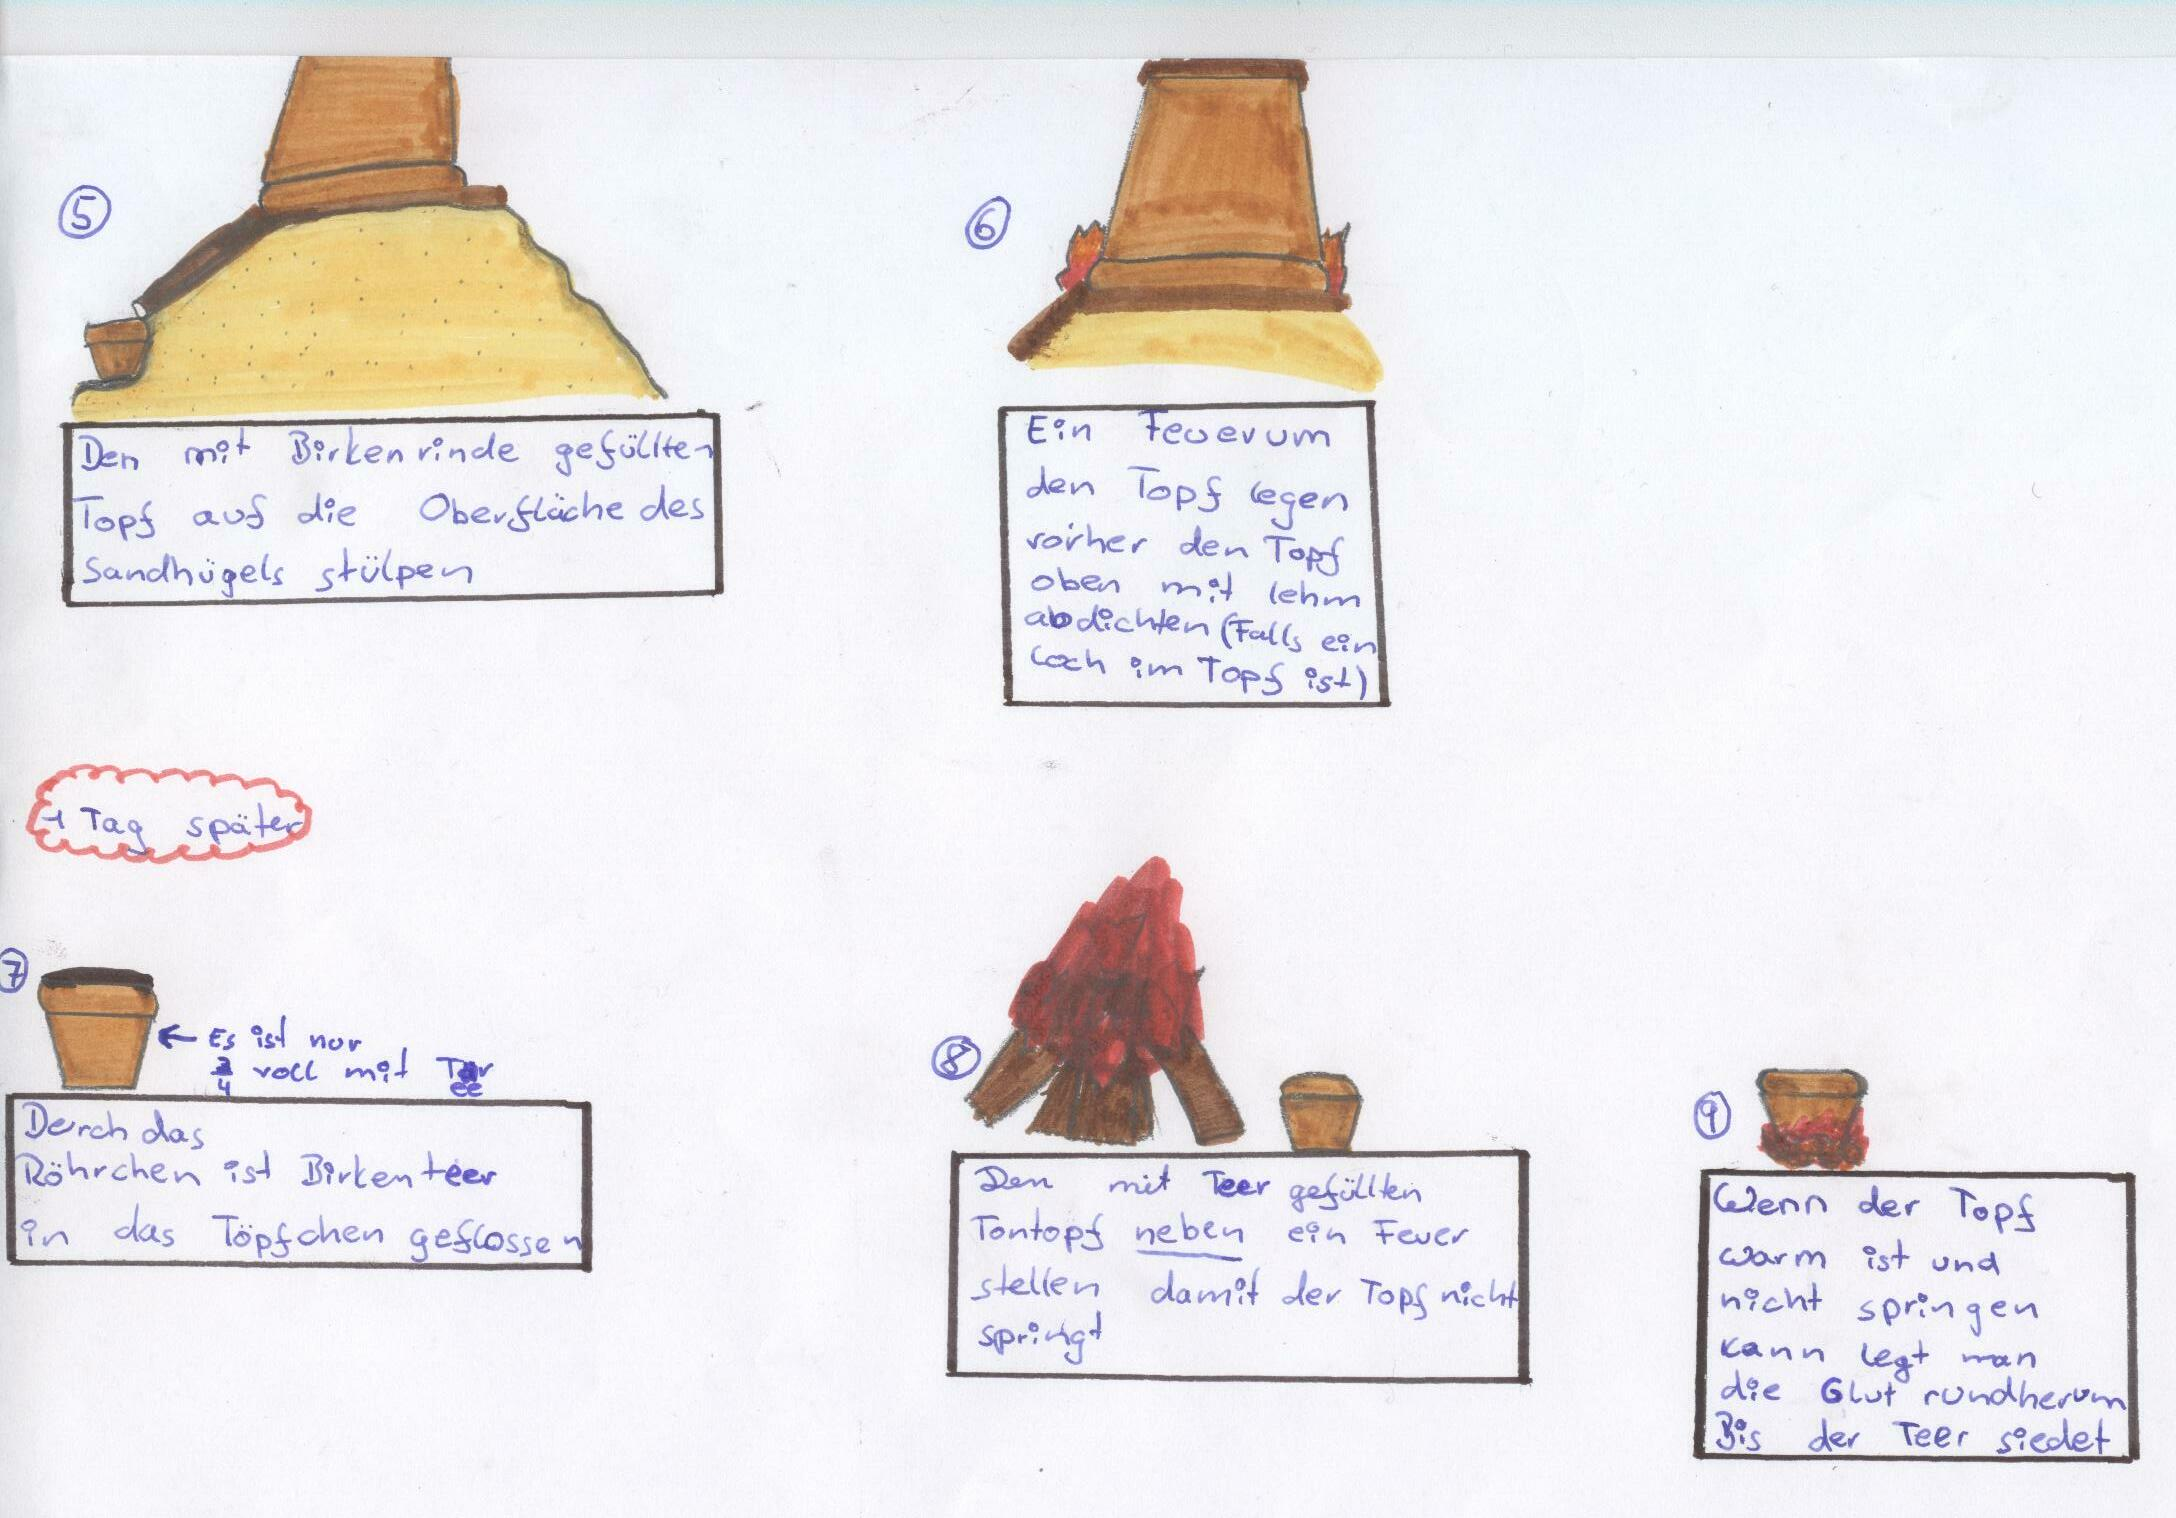 5
Den mit Birkenrinde gefüllten
Topf auf die Oberfläche des
Sandhügels stülpen
6
Ein Feuer um
den Topf legen
vorher den Topf
oben mit lehm
abdichten (Falls ein
Loch im Topf ist)
1 Tag später
7
← Es ist nur
3/4 voll mit Teer
Durch das
Röhrchen ist Birkenteer
in das Töpfchen geflossen
8
Den mit Teer gefüllten
Tontopf neben ein Feuer
stellen damit der Topf nicht
springt
9
Wenn der Topf
warm ist und
nicht springen
kann legt man
die Glut rundherum
Bis der Teer siedet